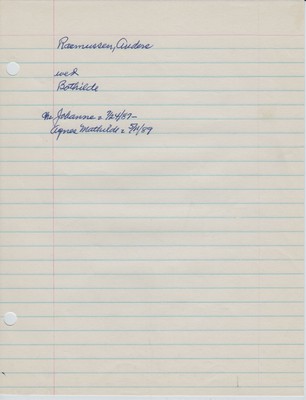 Rasmussen, Anders
wed
Bothilde
Johanne = 9/24/87-
Agnes Mathilde =